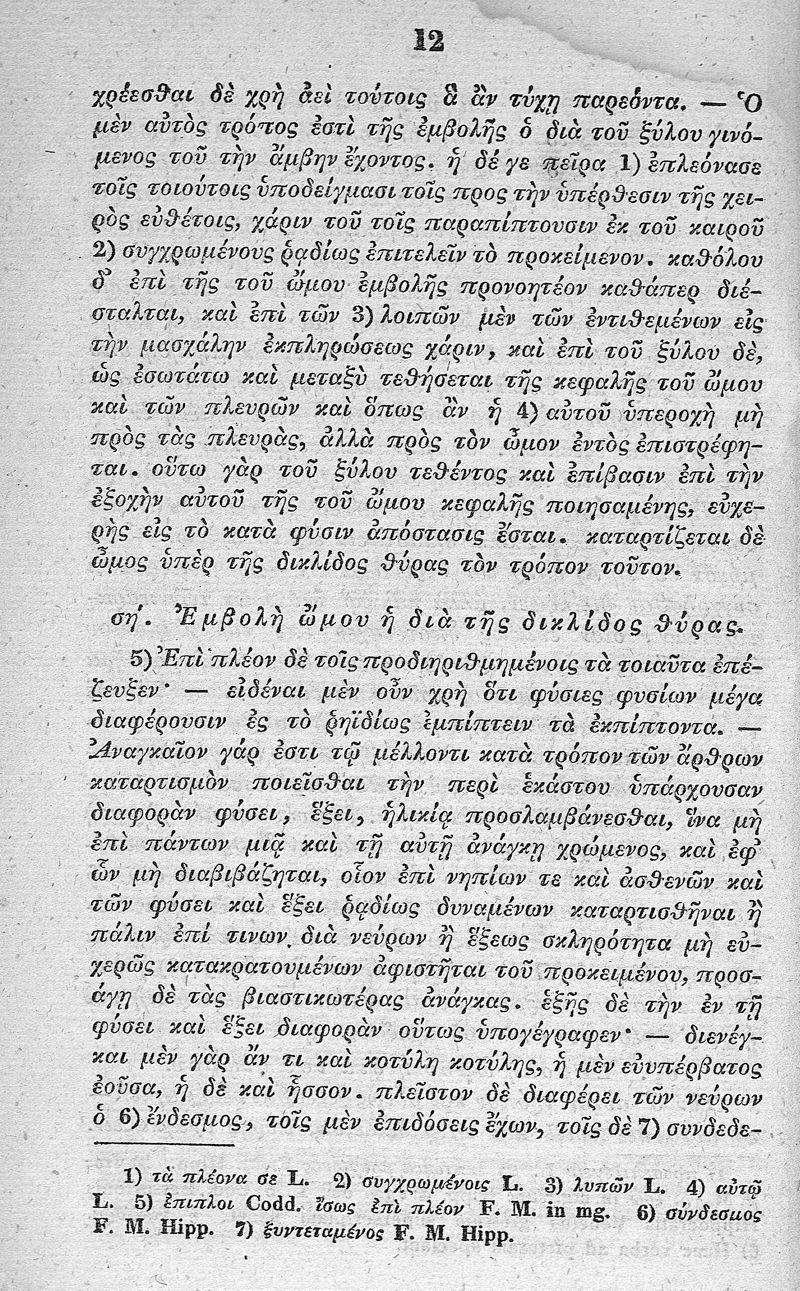 12
χρέεσθαι δὲ χρὴ ἀεὶ τούτοις ἃ ἂν τύχῃ παρεόντα. — Ὁ
μὲν αὐτὸς τρόπος ἐστὶ τῆς ἐμβολῆς ὁ διὰ τοῦ ξύλου γινό-
μενος τοῦ τὴν ἄμβην ἔχοντος. ἡ δέ γε πεῖρα 1) ἐπλεόνασε
τοῖς τοιούτοις ὑποδείγμασι τοῖς προς τὴν ὑπέρθεσιν τῆς χει-
ρὸς εὐθέτοις, χάριν τοῦ τοῖς παραπίπτουσιν ἐκ τοῦ καιροῦ
2) συγχρωμένους ῥᾳδίως ἐπιτελεῖν τὸ προκείμενον. καθόλου
δ᾽ ἐπὶ τῆς τοῦ ὤμου ἐμβολῆς προνοητέον καθάπερ διέ-
σταλται, καὶ ἐπὶ τῶν 3) λοιπῶν μὲν τῶν ἐντιθεμένων εἰς
τὴν μασχάλην ἐκπληρώσεως χάριν, καὶ ἐπὶ τοῦ ξύλου δὲ,
ὡς ἐσωτάτω καὶ μεταξὺ τεθήσεται τῆς κεφαλῆς τοῦ ὤμου
καὶ τῶν πλευρῶν καὶ ὅπως ἂν ἡ 4) αὐτοῦ ὑπεροχὴ μὴ
πρὸς τὰς πλευρὰς, ἀλλὰ πρὸς τὸν ὦμον ἐντὸς ἐπιστρέφη-
ται. οὕτω γὰρ τοῦ ξύλου τεθέντος καὶ ἐπίβασιν ἐπὶ τὴν
ἐξοχὴν αὐτοῦ τῆς τοῦ ὤμου κεφαλῆς ποιησαμένης, εὐχε-
ρὴς εἰς τὸ κατὰ φύσιν ἀπόστασις ἔσται. καταρτίζεται δὲ
ὦμος ὑπὲρ τῆς δικλίδος θύρας τὸν τρόπον τοῦτον.
ση΄. Ἐμβολὴ ὤμου ἡ διὰ τῆς δικλίδος θύρας.
5) Ἐπὶ πλέον δὲ τοῖς προδιηριθμημένοις τὰ τοιαῦτα ἐπέ-
ζευξεν· — εἰδέναι μὲν οὖν χρὴ ὅτι φύσιες φυσίων μέγα
διαφέρουσιν ἐς τὸ ῥηϊδίως ἐμπίπτειν τὰ ἐκπίπτοντα. —
Ἀναγκαῖον γάρ ἐστι τῷ μέλλοντι κατὰ τρόπον τῶν ἄρθρων
καταρτισμὸν ποιεῖσθαι τὴν περὶ ἑκάστου ὑπάρχουσαν
διαφορὰν φύσει, ἕξει, ἡλικίᾳ προσλαμβάνεσθαι, ἵνα μὴ
ἐπὶ πάντων μιᾷ καὶ τῇ αὐτῇ ἀνάγκῃ χρώμενος, καὶ ἐφ᾽
ὧν μὴ διαβιβάζηται, οἷον ἐπὶ νηπίων τε καὶ ἀσθενῶν καὶ
τῶν φύσει καὶ ἕξει ῥᾳδίως δυναμένων καταρτισθῆναι ἢ
πάλιν ἐπί τινων διὰ νεύρων ἢ ἕξεως σκληρότητα μὴ εὐ-
χερῶς κατακρατουμένων ἀφιστῆται τοῦ προκειμένου, προσ-
άγῃ δὲ τὰς βιαστικωτέρας ἀνάγκας. ἑξῆς δὲ τὴν ἐν τῇ
φύσει καὶ ἕξει διαφορὰν οὕτως ὑπογέγραφεν· — διενέγ-
και μὲν γὰρ ἄν τι καὶ κοτύλη κοτύλης, ἡ μὲν εὐυπέρβατος
ἐοῦσα, ἡ δὲ καὶ ἧσσον. πλεῖστον δὲ διαφέρει τῶν νεύρων
ὁ 6) ἔνδεσμος, τοῖς μὲν ἐπιδόσεις ἔχων, τοῖς δὲ 7) συνδεδε-
1) τὰ πλέονα σε L. 2) συγχρωμένοις L. 3) λυπῶν L. 4) αὐτῷ
L. 5) ἐπιπλοι Codd. ἴσως ἐπὶ πλέον F. M. in mg. 6) σύνδεσμος
F. M. Hipp. 7) ξυντεταμένος F. M. Hipp.